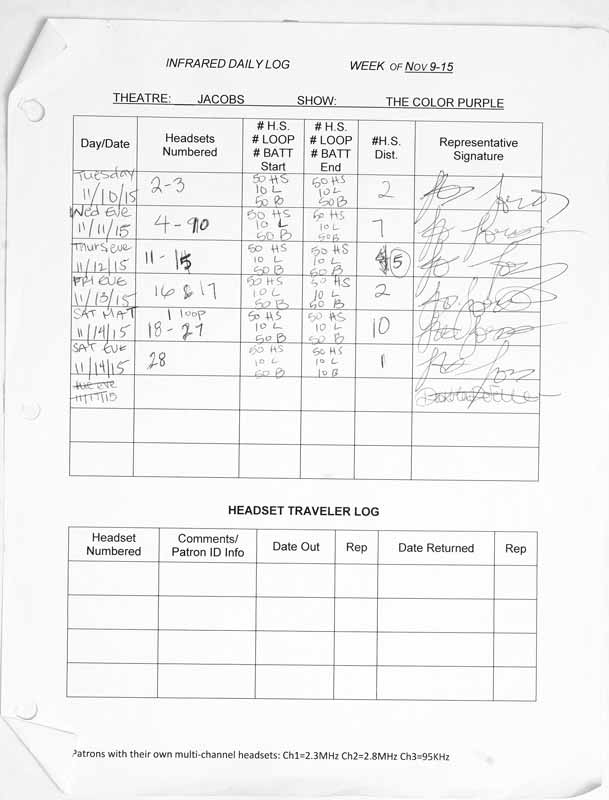 INFRARED DAILY LOG WEEK OF NOV 9-15
THEATRE: JACOBS SHOW: THE COLOR PURPLE
Day/Date Headsets Numbered # H.S. # LOOP # BATT Start # H.S. # LOOP # BATT End #H.S. Dist. Representative Signature
Tuesday 11/10/15 2-3 50 HS 10 L 50 B 50 HS 10 L 50 B 2
Wed Eve 11/11/15 4-10 50 HS 10 L 50 B 50 HS 10 L 50 B 7
Thurs eve 11/12/15 11-15 50 HS 10 L 50 B 50 HS 10 L 50 B 5
FRI EVE 11/13/15 16 & 17 50 HS 10 L 50 B 50 HS 10 L 50 B 2
SAT MAT 11/14/15 1 loop 18-27 50 HS 10 L 50 B 50 HS 10 L 50 B 10
SAT EVE 11/14/15 28 50 HS 10 L 50 B 50 HS 10 L 10 B 1
Tue eve 11/17/15
HEADSET TRAVELER LOG
Headset Numbered Comments/ Patron ID Info Date Out Rep Date Returned Rep
Patrons with their own multi-channel headsets: Ch1=2.3MHz Ch2=2.8MHz Ch3=95KHz